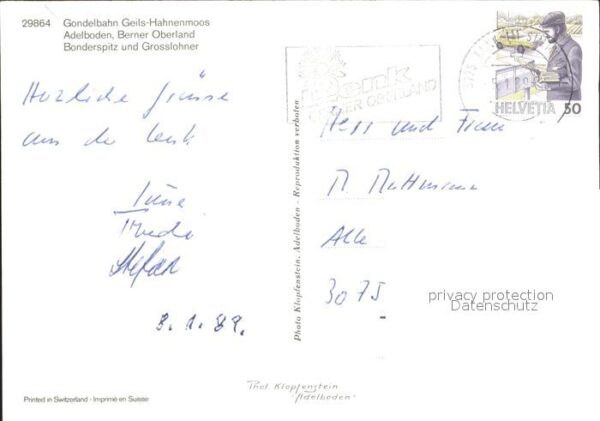 29864 Gondelbahn Geils-Hahnenmoos
Adelboden, Berner Oberland
Bonderspitz und Grosslohner
Herzliche Grüsse
aus der Lenk
Stefan
3.1.89.
Printed in Switzerland · Imprimé en Suisse
Photo Klopfenstein, Adelboden - Reproduktion verboten
Phot Klopfenstein
"Adelboden"
lenk
BERNER OBERLAND
HELVETIA 50
Herr und Frau
3075
privacy protection
Datenschutz